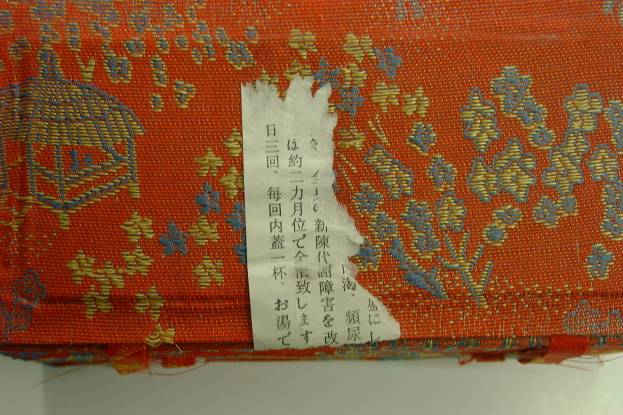 にし
渇、頻尿
新陳代謝障害を改
は約二カ月位で全治致します
日三回、毎回内蓋一杯、お湯で